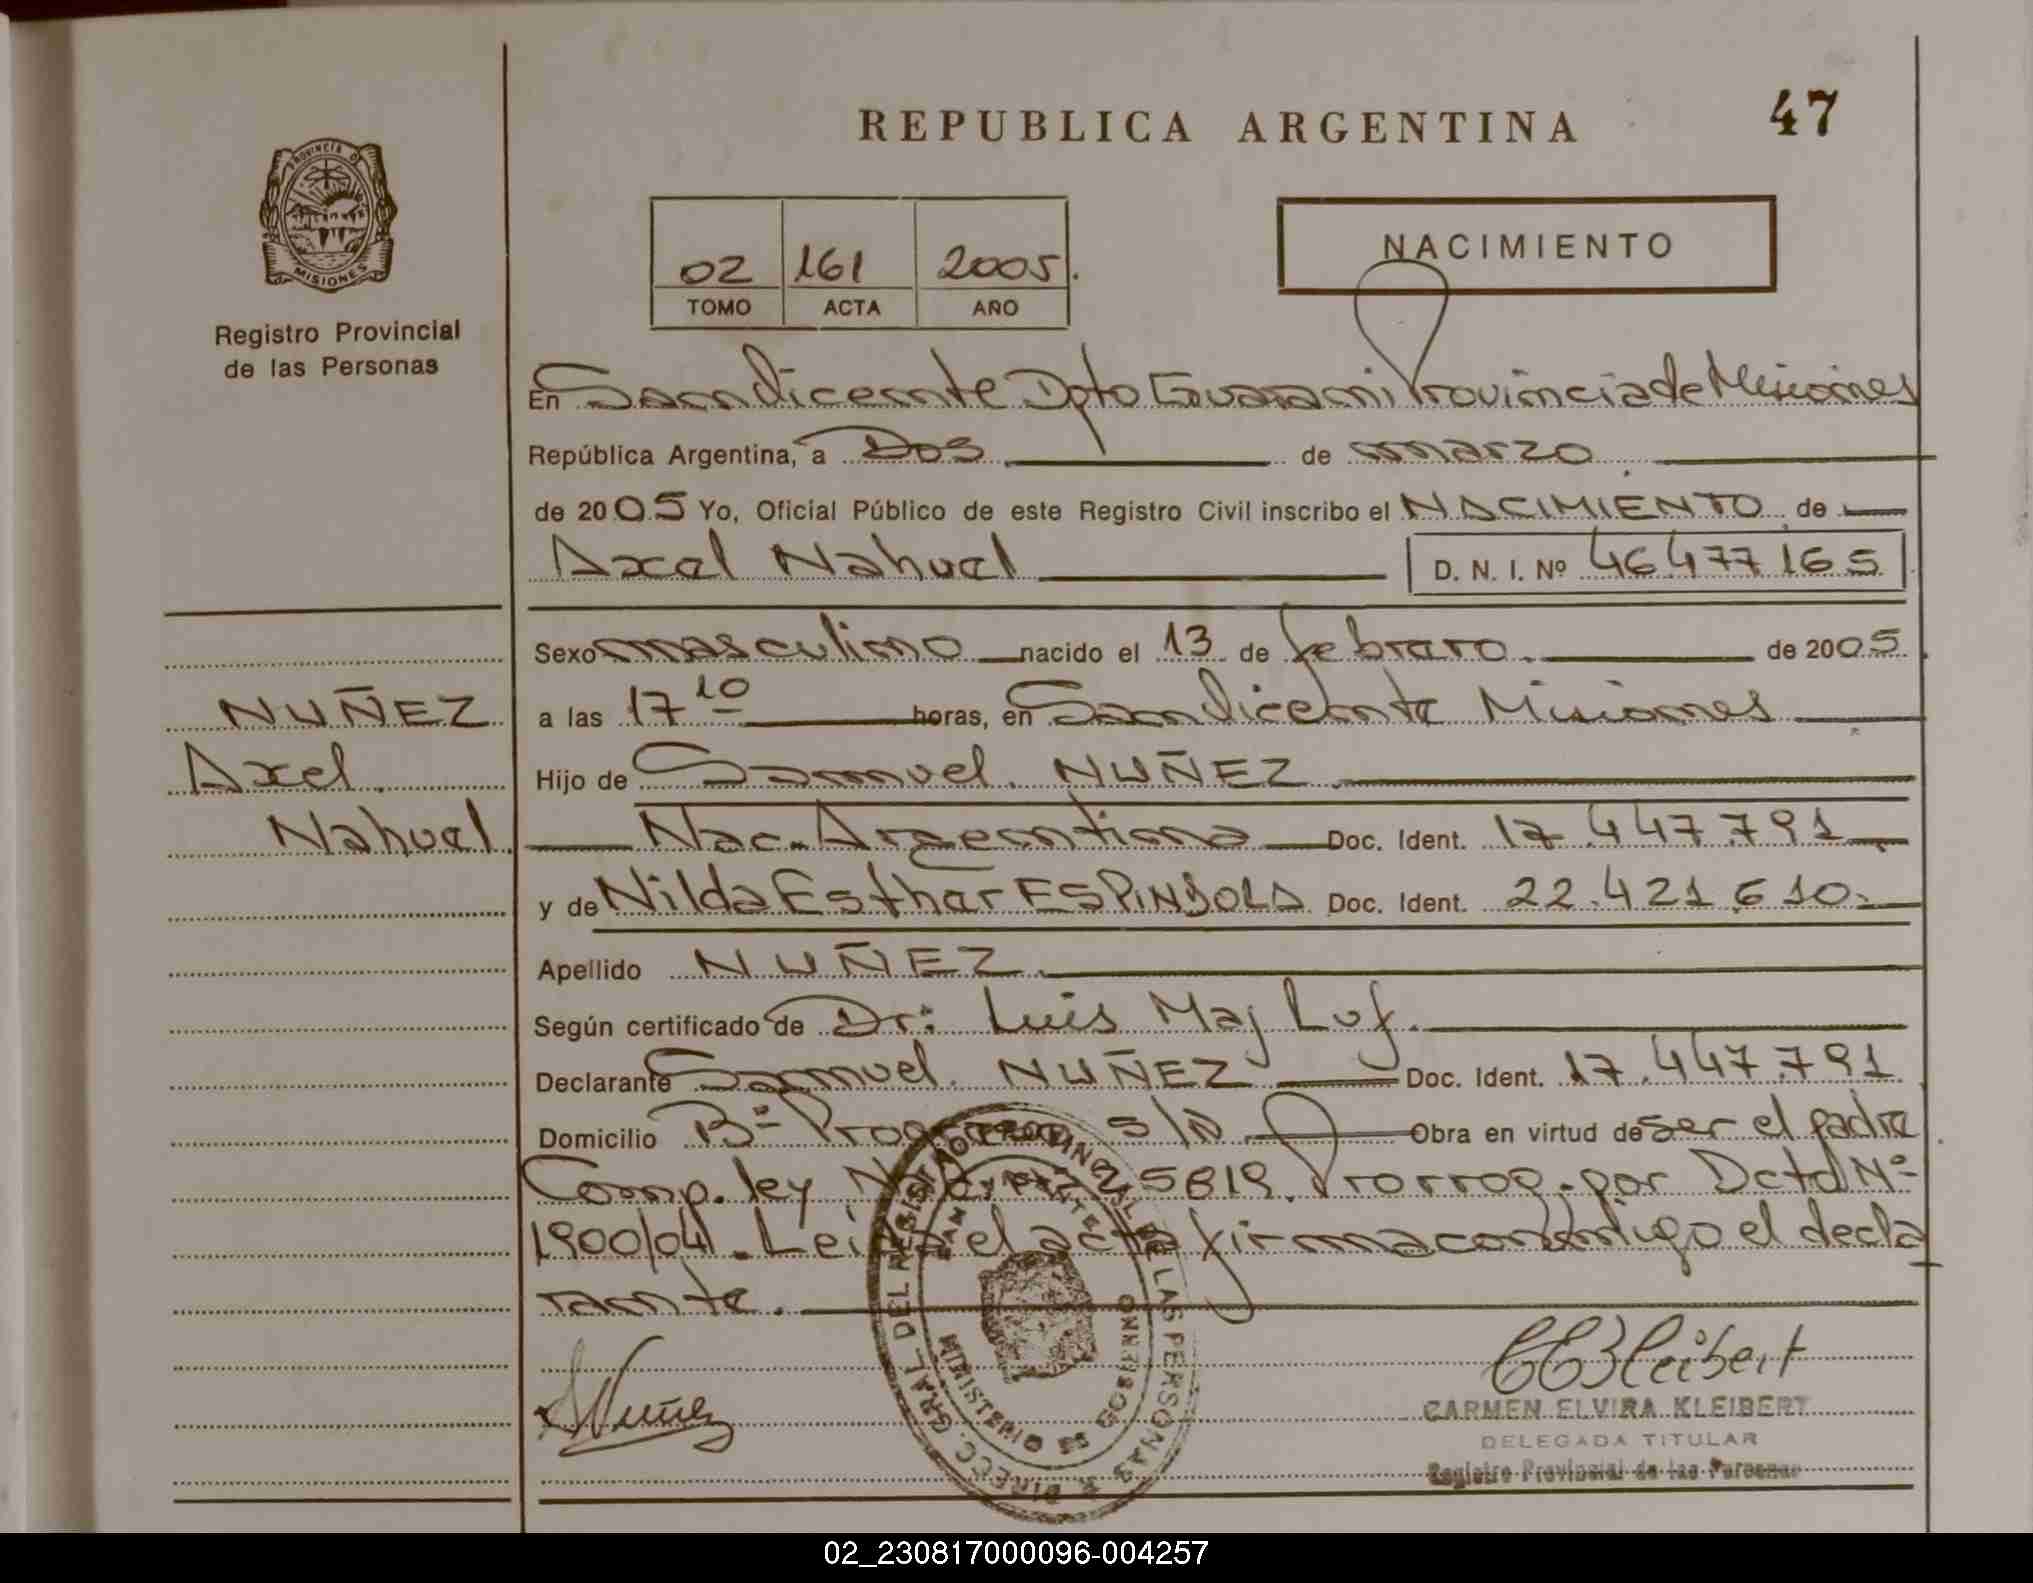 REPUBLICA ARGENTINA
47
PROVINCIA DE
MISIONES
Registro Provincial
de las Personas
02 161 2005.
TOMO ACTA AÑO
NACIMIENTO
En San Vicente Dpto Guarani Provincia de Misiones
República Argentina, a Dos de marzo
de 2005 Yo, Oficial Público de este Registro Civil inscribo el NACIMIENTO de
Axel Nahuel D. N. I. Nº 46477165
Sexo masculino nacido el 13 de febrero. de 2005
NUÑEZ
a las 17 10 horas, en San Vicente Misiones
Axel
Hijo de Samuel NUÑEZ
Nahuel.
Nac. Argentina Doc. Ident. 17.447.791
y de Nilda Esther ESPINDOLA Doc. Ident. 22.421.610.
Apellido NUÑEZ
Según certificado de Dr: Luis Maj Luf.
Declarante Samuel NUÑEZ Doc. Ident. 17.447.791
Domicilio Bº Progreso s/n Obra en virtud de ser el padre
Comp. ley Nac. Nº 25819. Prorrog. por Dcto Nº
1900/04. Leida el acta firma conmigo el decla
rante.
DIRECC. GRAL. DEL REGISTRO PROVINCIAL DE LAS PERSONAS
SAN VICENTE
MINISTERIO DE GOBIERNO
Nuñez
CEKleibert
CARMEN ELVIRA KLEIBERT
DELEGADA TITULAR
Registro Provincial de las Personas
02_230817000096-004257